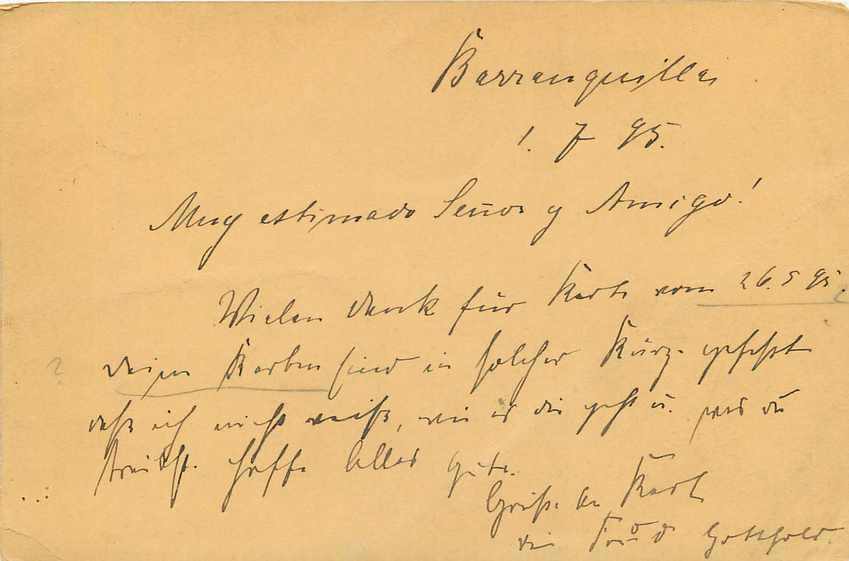 Barranquilla
1. 7 95.
Muy estimado Señor y Amigo!
Vielen Dank für Karte vom 26.5 95.
deine Karten sind in solcher Kürze gefaßt
daß ich nicht weiß, wie es dir geht u. was du
treibst. Hoffe Alles Gute.
Grüße an Karl
dein Gotthold.